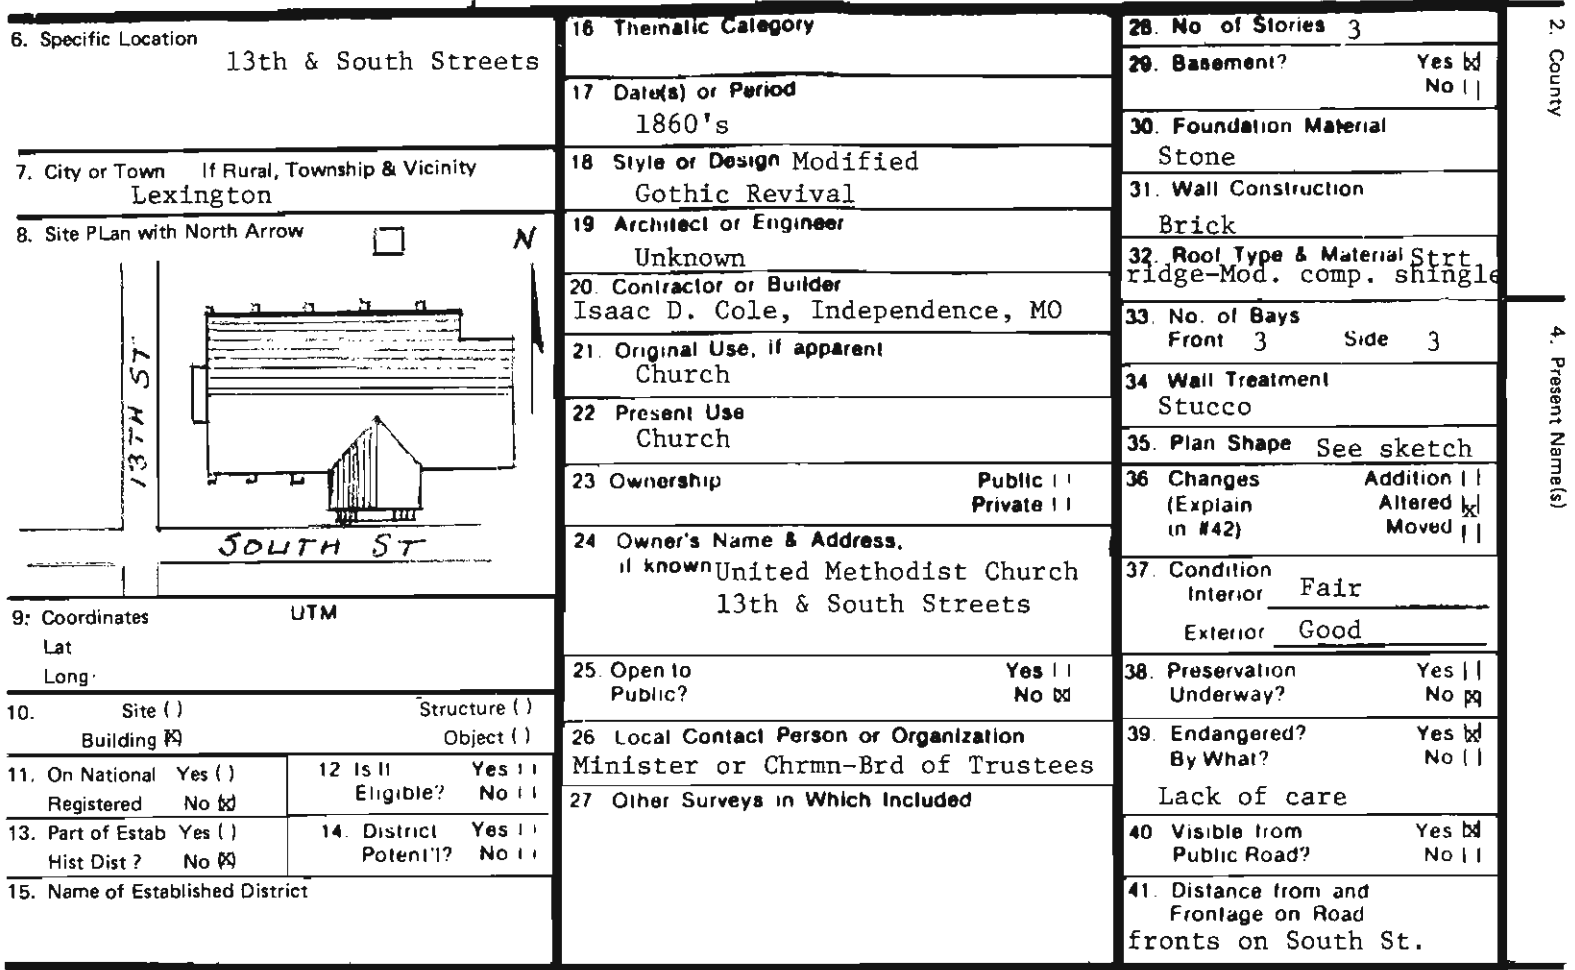 6. Specific Location
13th & South Streets
7. City or Town If Rural, Township & Vicinity
Lexington
8. Site PLan with North Arrow
N
13TH ST
SOUTH ST
9. Coordinates UTM
Lat
Long
10. Site ( ) Structure ( )
Building (X) Object ( )
11. On National Yes ( )
Registered No (X)
12 Is It Yes ( )
Eligible? No ( )
13. Part of Estab Yes ( )
Hist Dist ? No (X)
14. District Yes ( )
Potent'l? No ( )
15. Name of Established District
16 Thematic Category
17 Date(s) or Period
1860's
18 Style or Design Modified
Gothic Revival
19 Architect or Engineer
Unknown
20. Contractor or Builder
Isaac D. Cole, Independence, MO
21. Original Use, if apparent
Church
22 Present Use
Church
23 Ownership Public ( )
Private ( )
24 Owner's Name & Address,
if known United Methodist Church
13th & South Streets
25. Open to Yes ( )
Public? No (X)
26 Local Contact Person or Organization
Minister or Chrmn-Brd of Trustees
27 Other Surveys in Which Included
28. No of Stories 3
29. Basement? Yes (X)
No ( )
30. Foundation Material
Stone
31. Wall Construction
Brick
32. Roof Type & Material Strt
ridge-Mod. comp. shingle
33. No. of Bays
Front 3 Side 3
34 Wall Treatment
Stucco
35. Plan Shape See sketch
36 Changes Addition ( )
(Explain Altered (X)
in #42) Moved ( )
37. Condition
Interior Fair
Exterior Good
38. Preservation Yes ( )
Underway? No (X)
39. Endangered? Yes (X)
By What? No ( )
Lack of care
40 Visible from Yes (X)
Public Road? No ( )
41. Distance from and
Frontage on Road
fronts on South St.
2. County
4. Present Name(s)